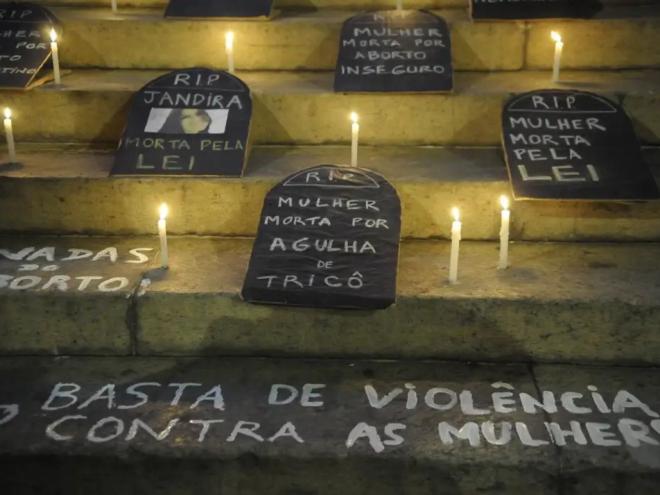 RIP
MULHER
MORTA POR
ABORTO
INSEGURO
RIP
JANDIRA
MORTA PELA
LEI
R.I.P
MULHER
MORTA
PELA
LEI
R.I.P
MULHER
MORTA POR
AGULHA
DE
TRICÔ
RIP
MULHER
BASTA DE VIOLÊNCIA
CONTRA AS MULHERES